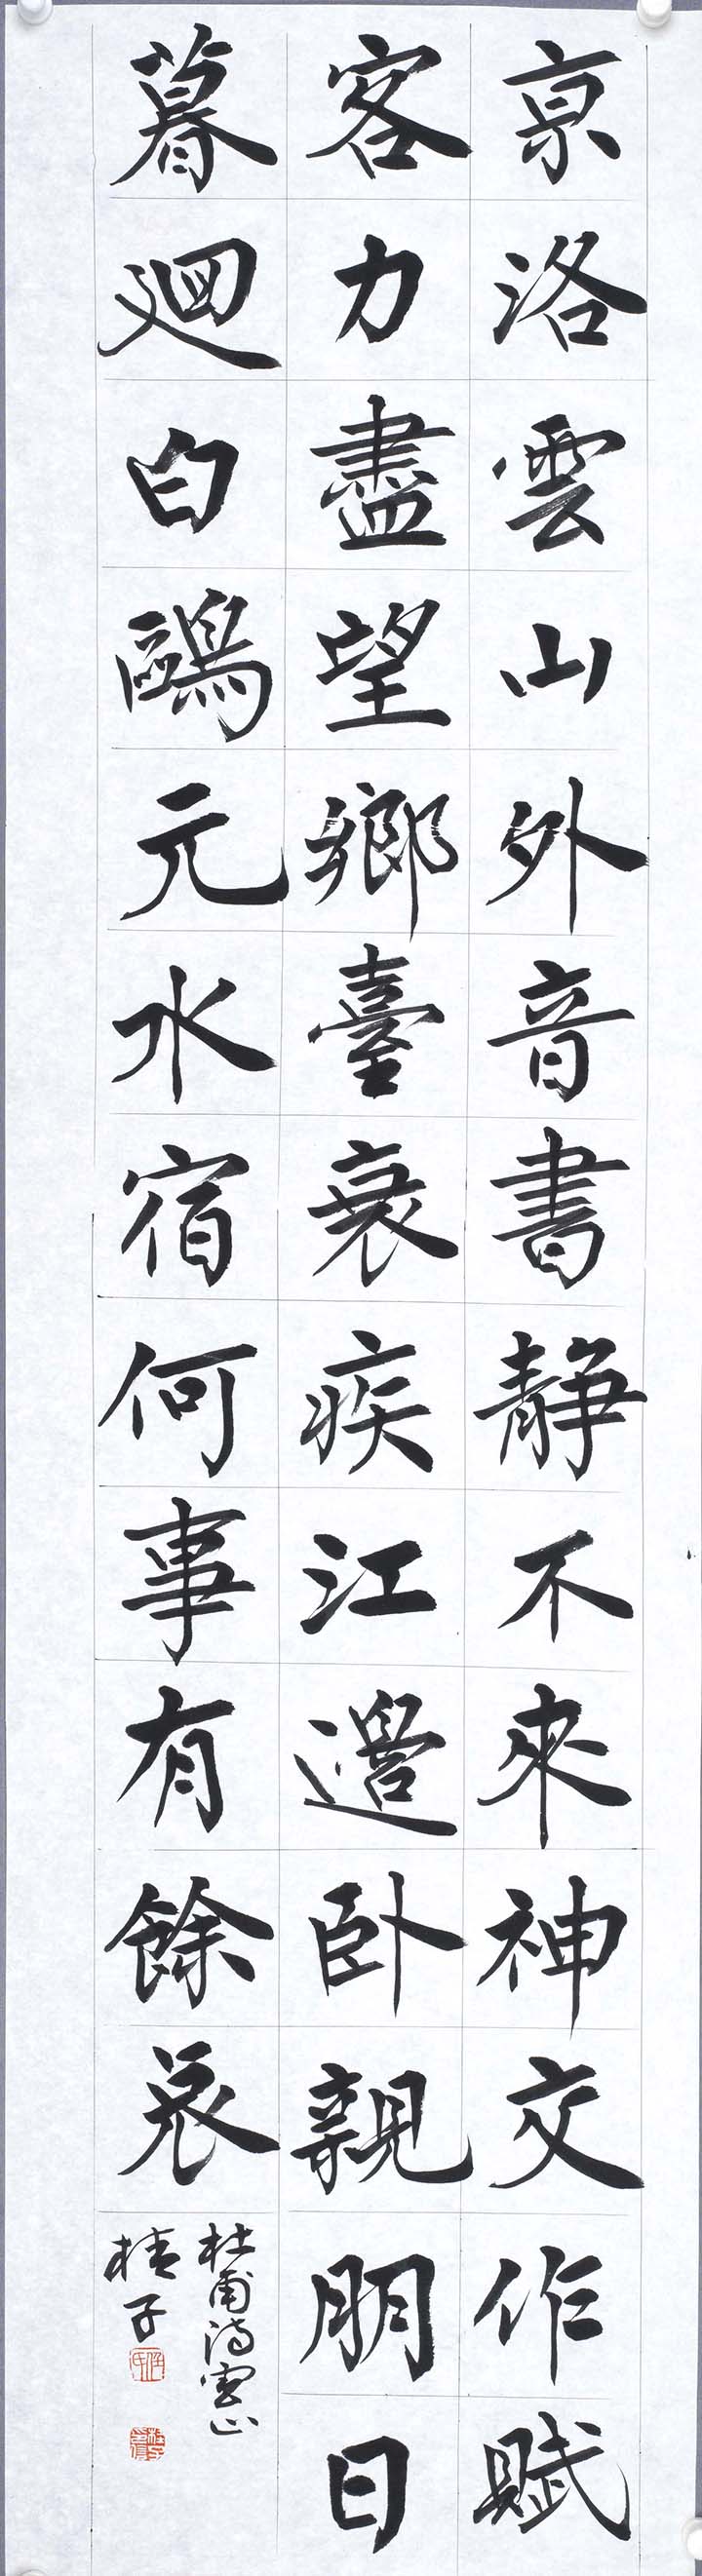 京洛雲山外音書静不來神交作賦
客力盡望鄉臺衰疾江邊卧親朋日
暮廻白鷗元水宿何事有餘哀
杜甫詩雲山
桂子